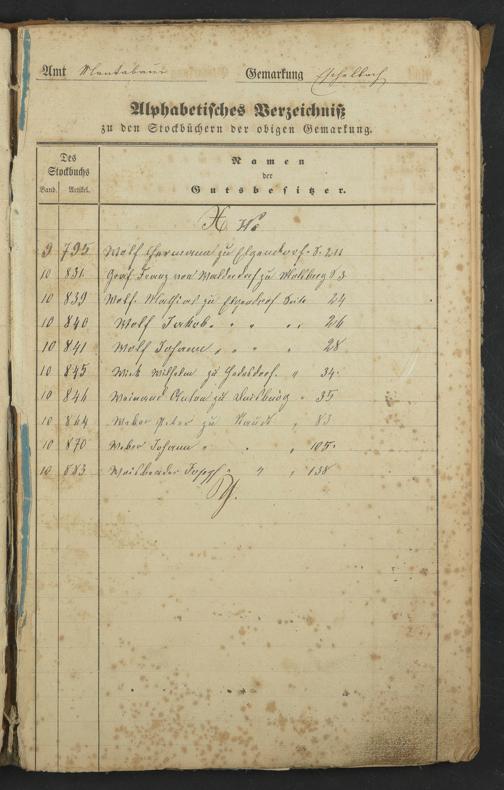 Amt Montabaur Gemarkung Eschelbach
Alphabetisches Verzeichniß
zu den Stockbüchern der obigen Gemarkung.
Des Stockbuchs
Band. Artikel.
Namen
der
Gutsbesitzer.
W.
9 795 Wolf Hermann zu Elgendorf S. 211
10 831 Graf Franz von Walderdorf zu Molsberg S. 3
10 839 Wolf Mathias zu Elgendorf Seite 24
10 840 Wolf Jakob " " " " 26
10 841 Wolf Johann " " " 28
10 845 Wilhelm zu " 34
10 846 Weinand Anton zu " 35
10 864 Weber Peter zu " 83
10 870 Weber Johann " " " 105
10 883 Joseph " " " 138